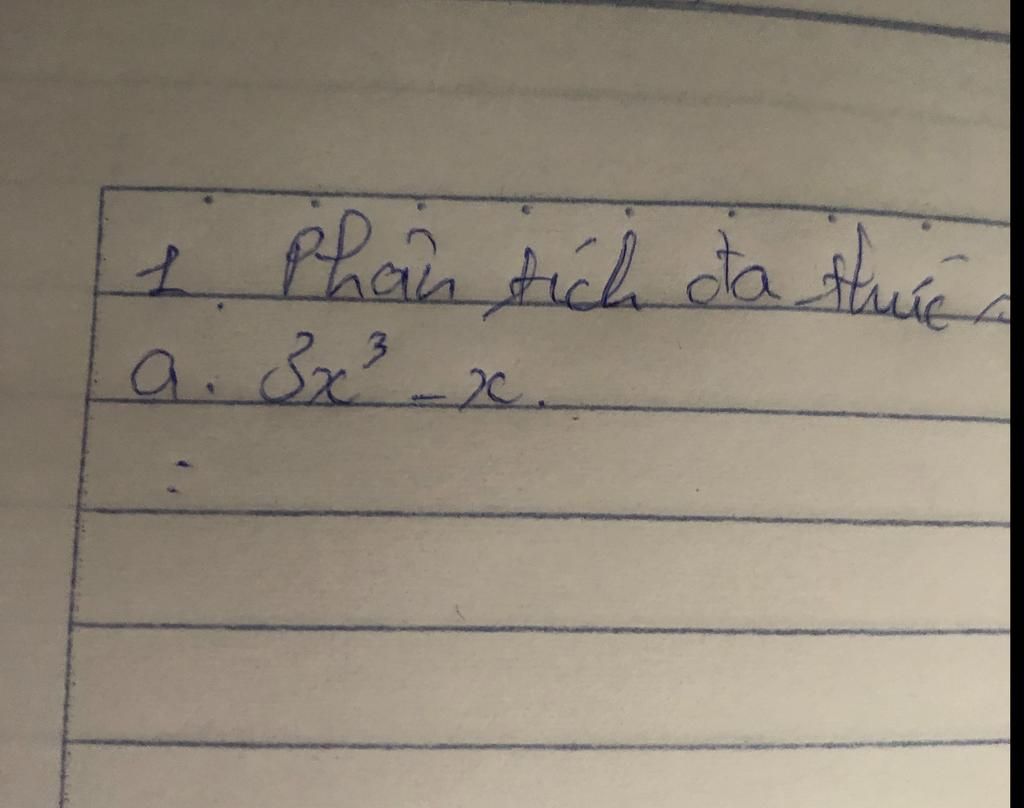 1. Phân tích đa thức
a. 3x³ - x.
=